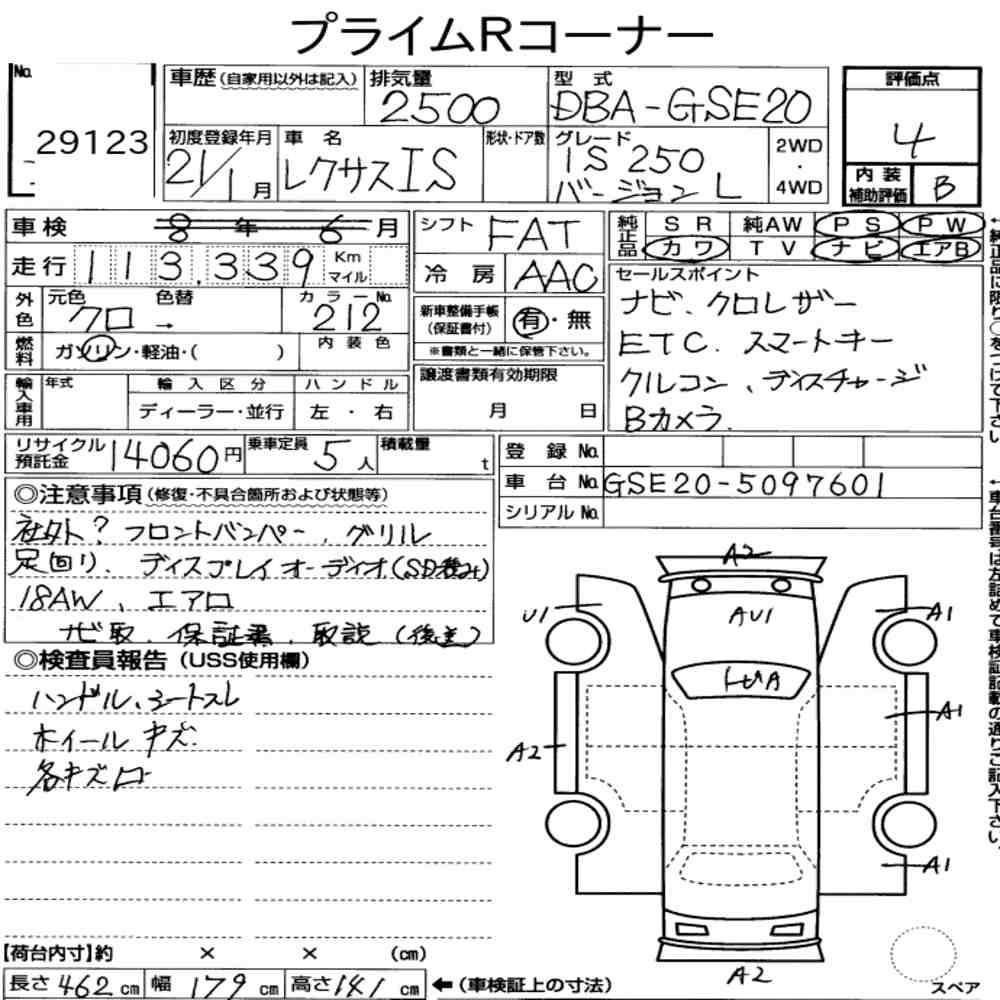 プライムRコーナー
No.
29123
車歴 (自家用以外は記入)
排気量
2500
型式
DBA-GSE20
評価点
4
初度登録年月
21/1月
車名
レクサスIS
形状・ドア数
グレード
IS 250
バージョン L
2WD
・
4WD
内装
補助評価
B
車検 8年6月
シフト
FAT
純正品
SR 純AW PS PW
カワ TV ナビ エアB
走行 113,339 Km
マイル
冷房
AAC
セールスポイント
ナビ、クロレザー
ETC、スマートキー
クルコン、ディスチャージ
Bカメラ
外色
元色
クロ →
色替
カラーNo.
212
新車整備手帳
(保証書付)
有・無
※書類と一緒に保管下さい。
燃料
ガソリン・軽油・( )
内装色
輸入車用
年式
輸入区分
ディーラー・並行
ハンドル
左・右
譲渡書類有効期限
月 日
リサイクル
預託金
14060円
乗車定員
5人
積載量
t
登録No.
車台No. GSE20-5097601
シリアルNo.
◎注意事項 (修復・不具合箇所および状態等)
社外? フロントバンパー、グリル
足回り、ディスプレイオーディオ(SD後渡)
18AW、エアロ
ナビ取、保証書、取説(後送)
◎検査員報告 (USS使用欄)
ハンドル、シートスレ
ホイールキズ
各キズ凹
A2
U1
AU1
A1
トビA
A1
A2
A1
A2
スペア
【荷台内寸】約 × × (cm)
長さ 462 cm 幅 179 cm 高さ 141 cm ←(車検証上の寸法)
↓純正品に限り○をつけて下さい
↓車台番号は左詰めで車検証記載の通りご記入下さい。